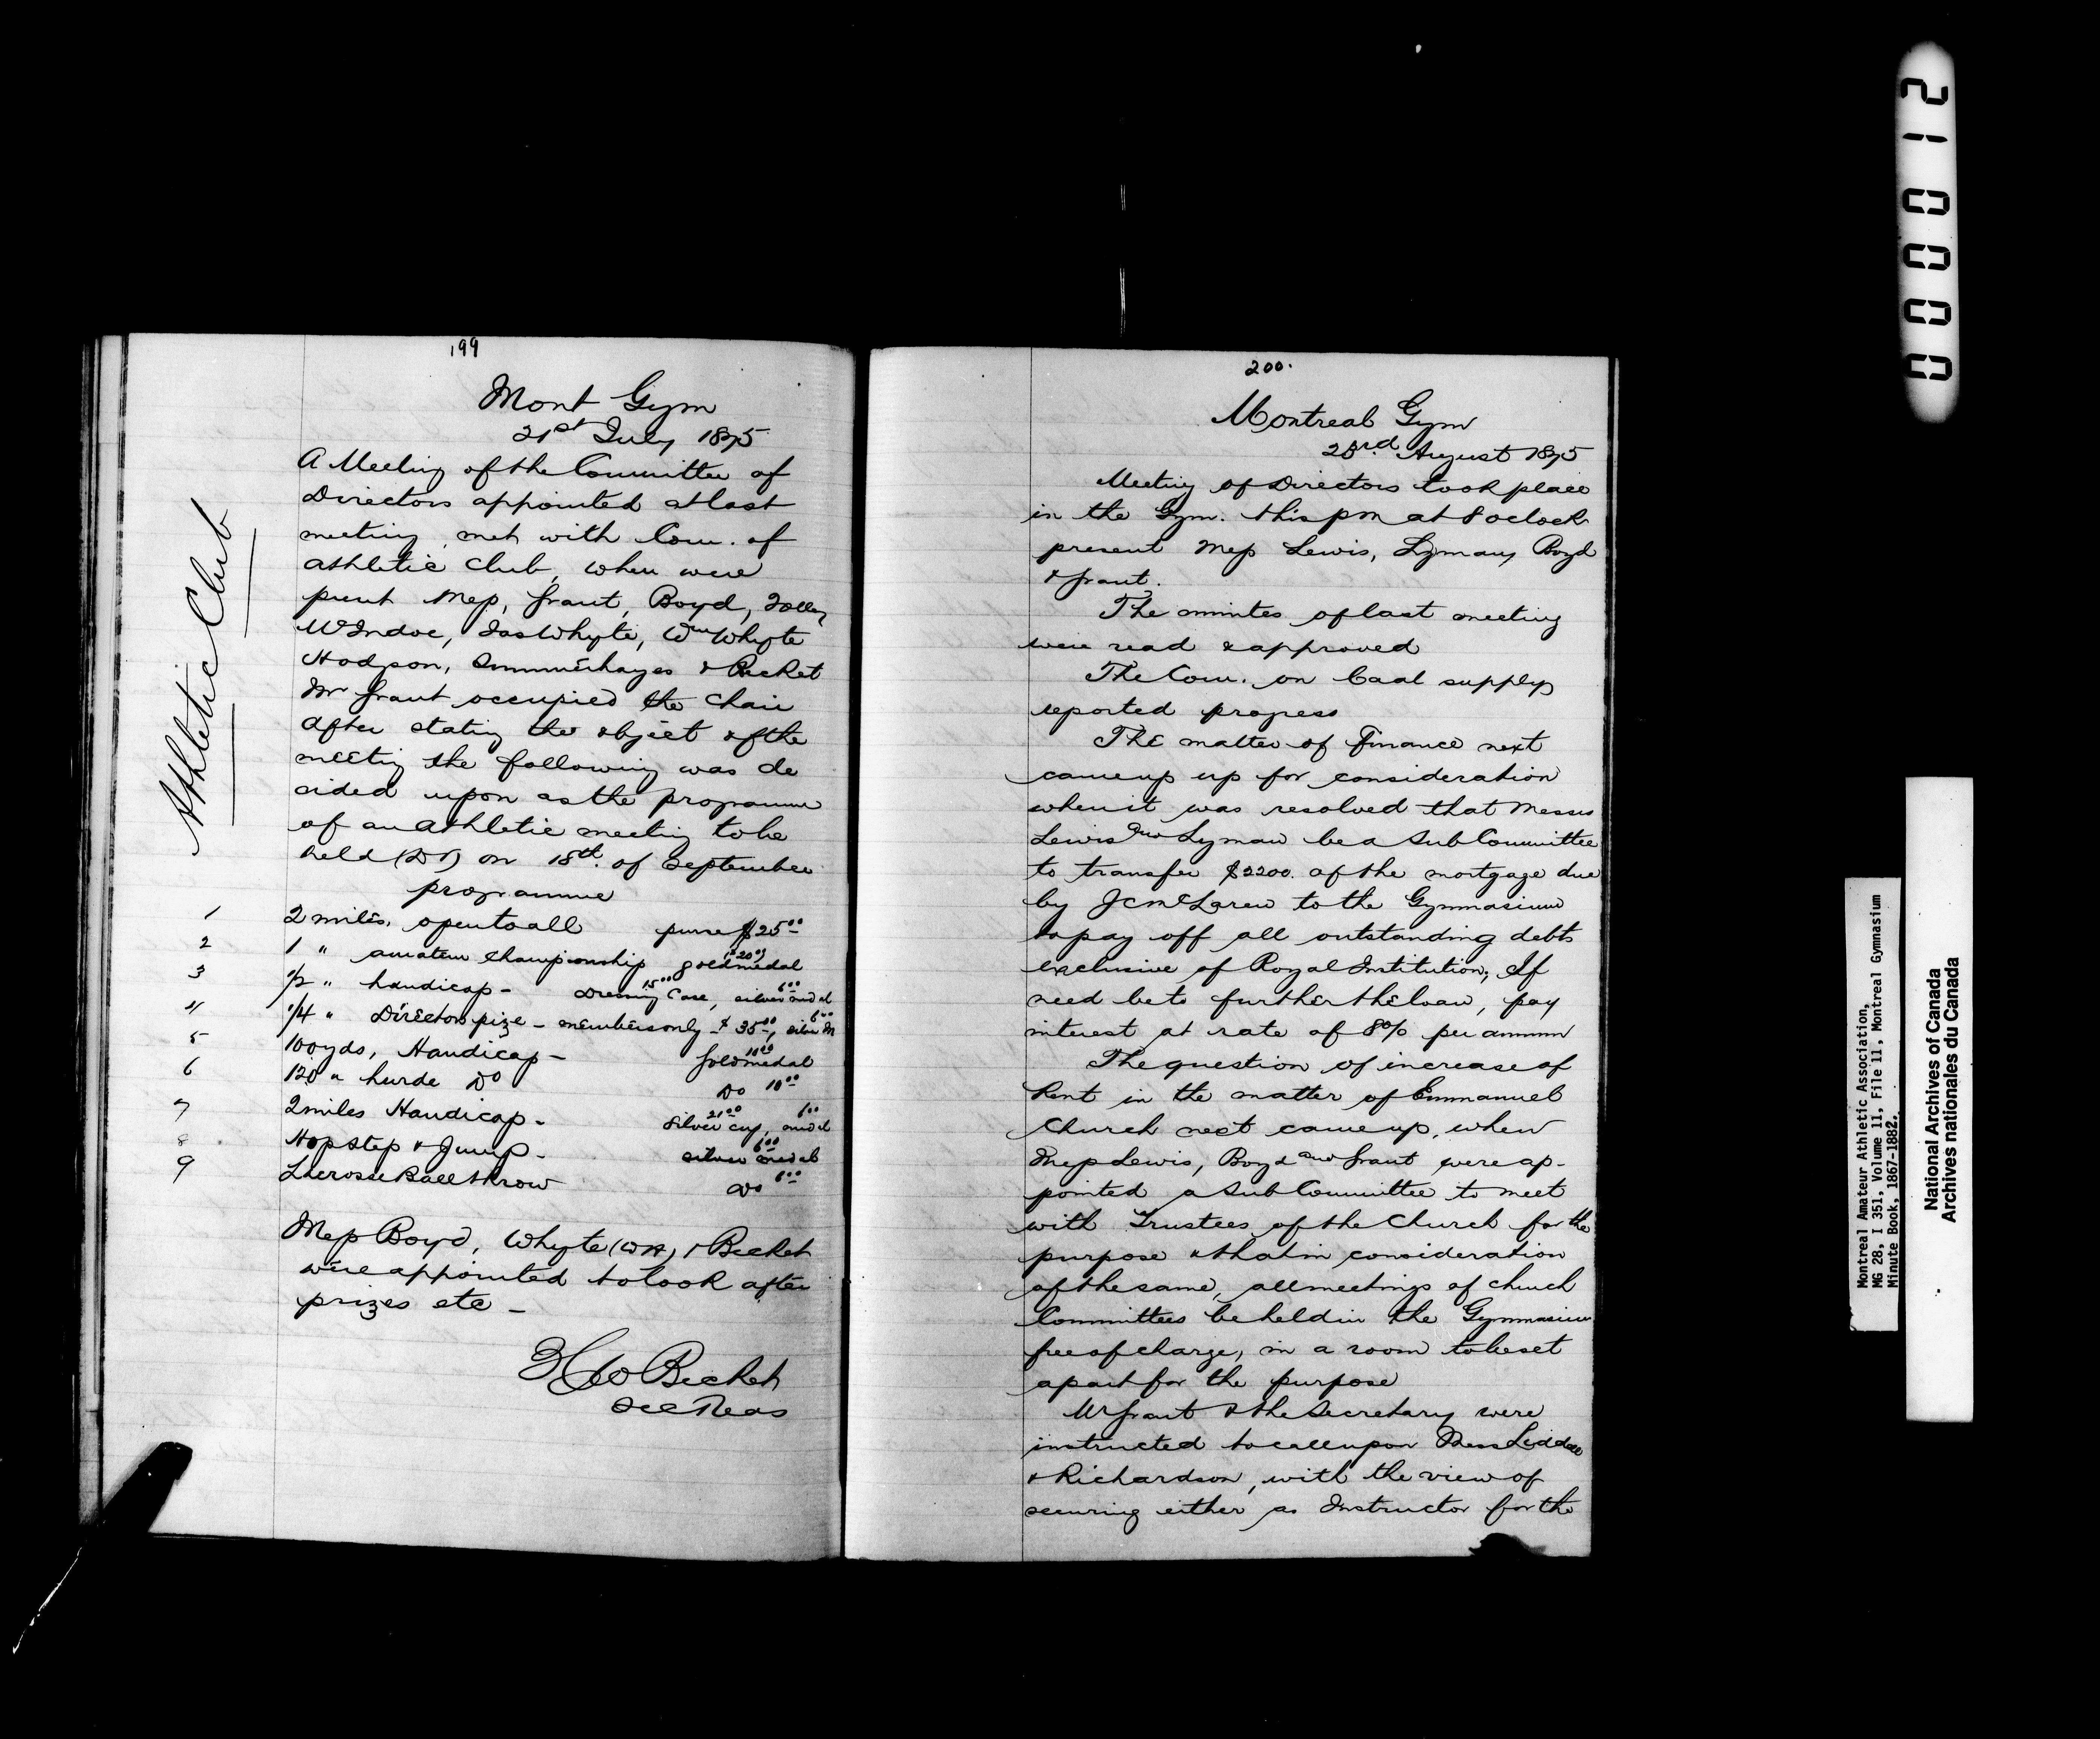 199
Mont Gym
21st July 1875
Athletic Club
A Meeting of the Committee of
Directors appointed at last
meeting, met with Com. of
athletic Club, when were
present Mess, Grant, Boyd,
McIndoe, Jas Whyte, Wm Whyte
Hodgson, Summerhayes & Becket
Mr Grant occupied the Chair
After stating the object of the
meeting the following was de
cided upon as the programme
of an Athletic meeting to be
held (DV) on 18th. of September
programme
1 2 miles, open to all purse $25.00
2 1 " amateur Championship gold medal ($20.00)
3 1/2 " handicap - Dressing Case, 15.00 silver medal 6.00
4 1/4 " Directors prize - members only - $35.00, silver M 6.00
5 100 yds, Handicap - Gold medal 10.00
6 120 " hurde Do Do 10.00
7 2 miles Handicap - Silver cup, 20.00 medal 6.00
8 Hop step & Jump - silver medal 6.00
9 Lacrosse Ball throw Do 6.00
Mess Boyd, Whyte (WH) & Becket
were appointed to look after
prizes etc -
H W Becket
Sec Treas
200.
Montreal Gym
23rd. August 1875
Meeting of Directors took place
in the Gym. this pm at 8 oclock
present Mess Lewis, Lyman, Boyd
& Grant.
The minutes of last meeting
were read & approved
The Com. on Coal supply
reported progress
The matter of Finance next
came up up for consideration
when it was resolved that Messrs
Lewis and Lyman be a Sub Committee
to transfer $2200. of the mortgage due
by J C McLaren to the Gymnasium
to pay off all outstanding debts
exclusive of Royal Institution; If
need be to further the loan, pay
interest at rate of 8% per annum
The question of increase of
Rent in the matter of Emmanuel
Church next came up, when
Mess Lewis, Boyd and Grant were ap-
pointed a Sub Committee to meet
with Trustees of the Church for the
purpose & that in consideration
of the same, all meetings of church
Committees be held in the Gymnasium
free of charge, in a room to be set
apart for the purpose
Mr Grant & the Secretary were
instructed to call upon Mess
& Richardson, with the view of
securing either as Instructor for the
000012
Montreal Amateur Athletic Association,
MG 28, I 351, Volume 11, File 11, Montreal Gymnasium
Minute Book, 1867-1882.
National Archives of Canada
Archives nationales du Canada